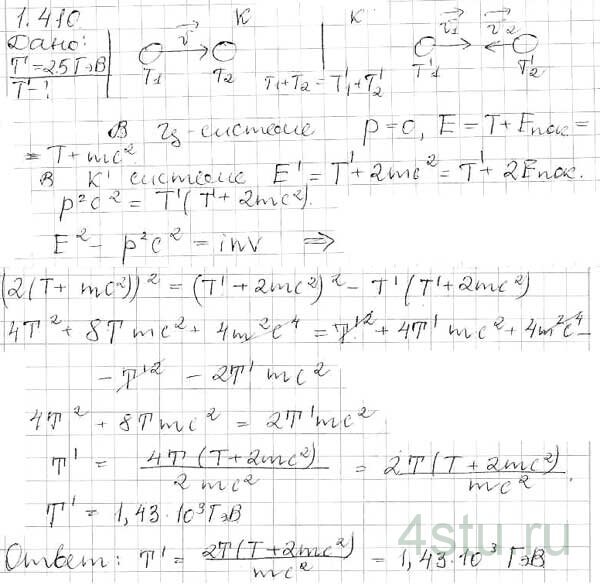 1.410
Дано:
T' = 25 ГэВ
T' - ?
K
K
v
v1
v2
T1
T2
T1+T2 = T'1+T'2
T'1
T'2
В Ц-системе p=0, E = T+Eпок =
= T+mc²
В K' системе E' = T'+2mc² = T'+2Eпок.
p²c² = T'(T'+2mc²).
E² - p²c² = inv ⇒
(2(T+mc²))² = (T'+2mc²)² - T'(T'+2mc²)
4T² + 8Tmc² + 4m²c⁴ = T'² + 4T'mc² + 4m²c⁴ -
- T'² - 2T'mc²
4T² + 8Tmc² = 2T'mc²
T' = 4T(T+2mc²) / 2mc² = 2T(T+2mc²) / mc².
T' = 1,43·10³ ГэВ
4stu.ru
Ответ: T' = 2T(T+2mc²) / mc² = 1,43·10³ ГэВ